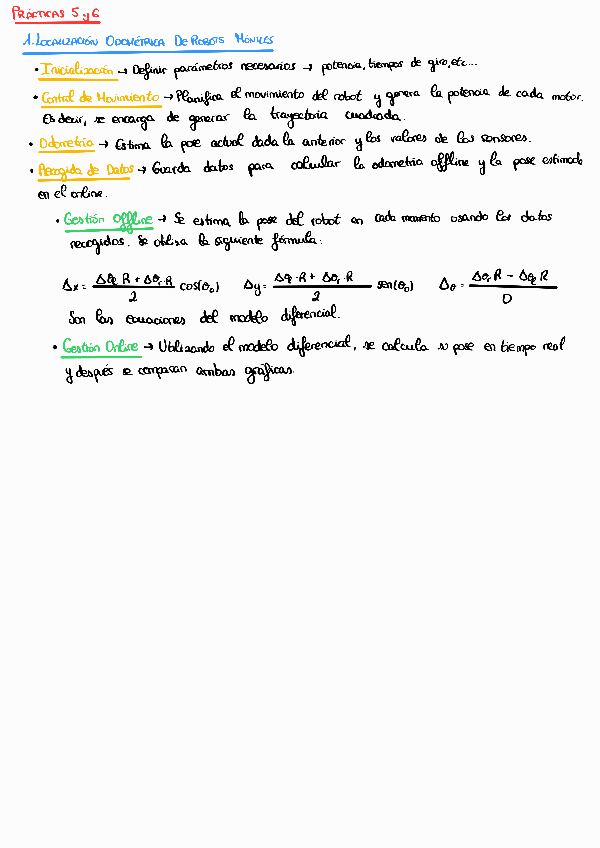 PRÁCTICAS 5 y 6
1. LOCALIZACIÓN ODOMÉTRICA DE ROBOTS MÓVILES
• Inicialización → Definir parámetros necesarios → potencia, tiempos de giro, etc...
• Control de Movimiento → Planifica el movimiento del robot y genera la potencia de cada motor.
Es decir, se encarga de generar la trayectoria cuadrada.
• Odometría → Estima la pose actual dada la anterior y los valores de los sensores.
• Recogida de Datos → Guarda datos para calcular la odometría offline y la pose estimada
en el online.
• Gestión Offline → Se estima la pose del robot en cada momento usando los datos
recogidos. Se utiliza la siguiente fórmula:
Δx = (Δθ_d R + Δθ_i R)/2 cos(θ₀) Δy = (Δθ_d R + Δθ_i R)/2 sen(θ₀) Δθ = (Δθ_i R − Δθ_d R)/D
Son las ecuaciones del modelo diferencial.
• Gestión Online → Utilizando el modelo diferencial, se calcula su pose en tiempo real
y después se comparan ambas gráficas.